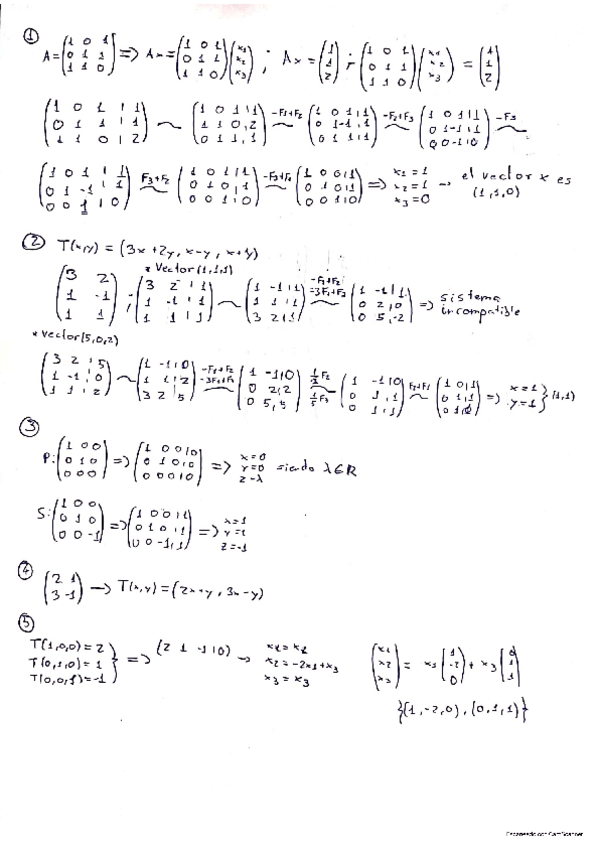 ①
A = (1 0 1; 0 1 1; 1 1 0) => Ax = (1 0 1; 0 1 1; 1 1 0)(x1; x2; x3) ; Ax = (1; 1; 2) ; (1 0 1; 0 1 1; 1 1 0)(x1; x2; x3) = (1; 1; 2)
(1 0 1 | 1; 0 1 1 | 1; 1 1 0 | 2) ~ (1 0 1 | 1; 1 1 0 | 2; 0 1 1 | 1) -F1+F2 ~ (1 0 1 | 1; 0 1 -1 | 1; 0 1 1 | 1) -F2+F3 ~ (1 0 1 | 1; 0 1 -1 | 1; 0 0 -1 | 0) -F3 ~
(1 0 1 | 1; 0 1 -1 | 1; 0 0 1 | 0) F3+F2 ~ (1 0 1 | 1; 0 1 0 | 1; 0 0 1 | 0) -F3+F1 ~ (1 0 0 | 1; 0 1 0 | 1; 0 0 1 | 0) => x1 = 1 x2 = 1 x3 = 0 → el vector x es (1,1,0)
② T(x,y) = (3x+2y, x-y, x+y)
* Vector (1,1,1)
(3 2; 1 -1; 1 1) ; (3 2 | 1; 1 -1 | 1; 1 1 | 1) ~ (1 -1 | 1; 1 1 | 1; 3 2 | 1) -F1+F2 -3F1+F3 ~ (1 -1 | 1; 0 2 | 0; 0 5 | -2) => sistema incompatible
* Vector (5,0,2)
(3 2 | 5; 1 -1 | 0; 1 1 | 2) ~ (1 -1 | 0; 1 1 | 2; 3 2 | 5) -F1+F2 -3F1+F3 ~ (1 -1 | 0; 0 2 | 2; 0 5 | 5) 1/2 F2 1/5 F3 ~ (1 -1 | 0; 0 1 | 1; 0 1 | 1) F2+F1 ~ (1 0 | 1; 0 1 | 1; 0 1 | 0) => x = 1 y = 1 } (1,1)
③
P: (1 0 0; 0 1 0; 0 0 0) => (1 0 0 | 0; 0 1 0 | 0; 0 0 0 | 0) => x = 0 y = 0 z = λ siendo λ ∈ R
S: (1 0 0; 0 1 0; 0 0 -1) => (1 0 0 | 1; 0 1 0 | 1; 0 0 -1 | 1) => x = 1 y = 1 z = -1
④
(2 1; 3 -1) → T(x,y) = (2x+y, 3x-y)
⑤
T(1,0,0) = 2
T(0,1,0) = 1
T(0,0,1) = -1
} => (2 1 -1 | 0) → x1 = x1 x2 = -2x1+x3 x3 = x3
(x1; x2; x3) = x1 (1; -2; 0) + x3 (0; 1; 1)
{(1,-2,0), (0,1,1)}
Escaneado con CamScanner